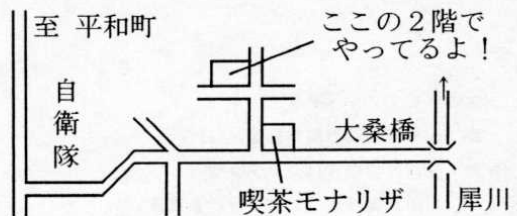 至 平和町
ここの2階で
やってるよ！
自衛隊
大桑橋
喫茶モナリザ
犀川